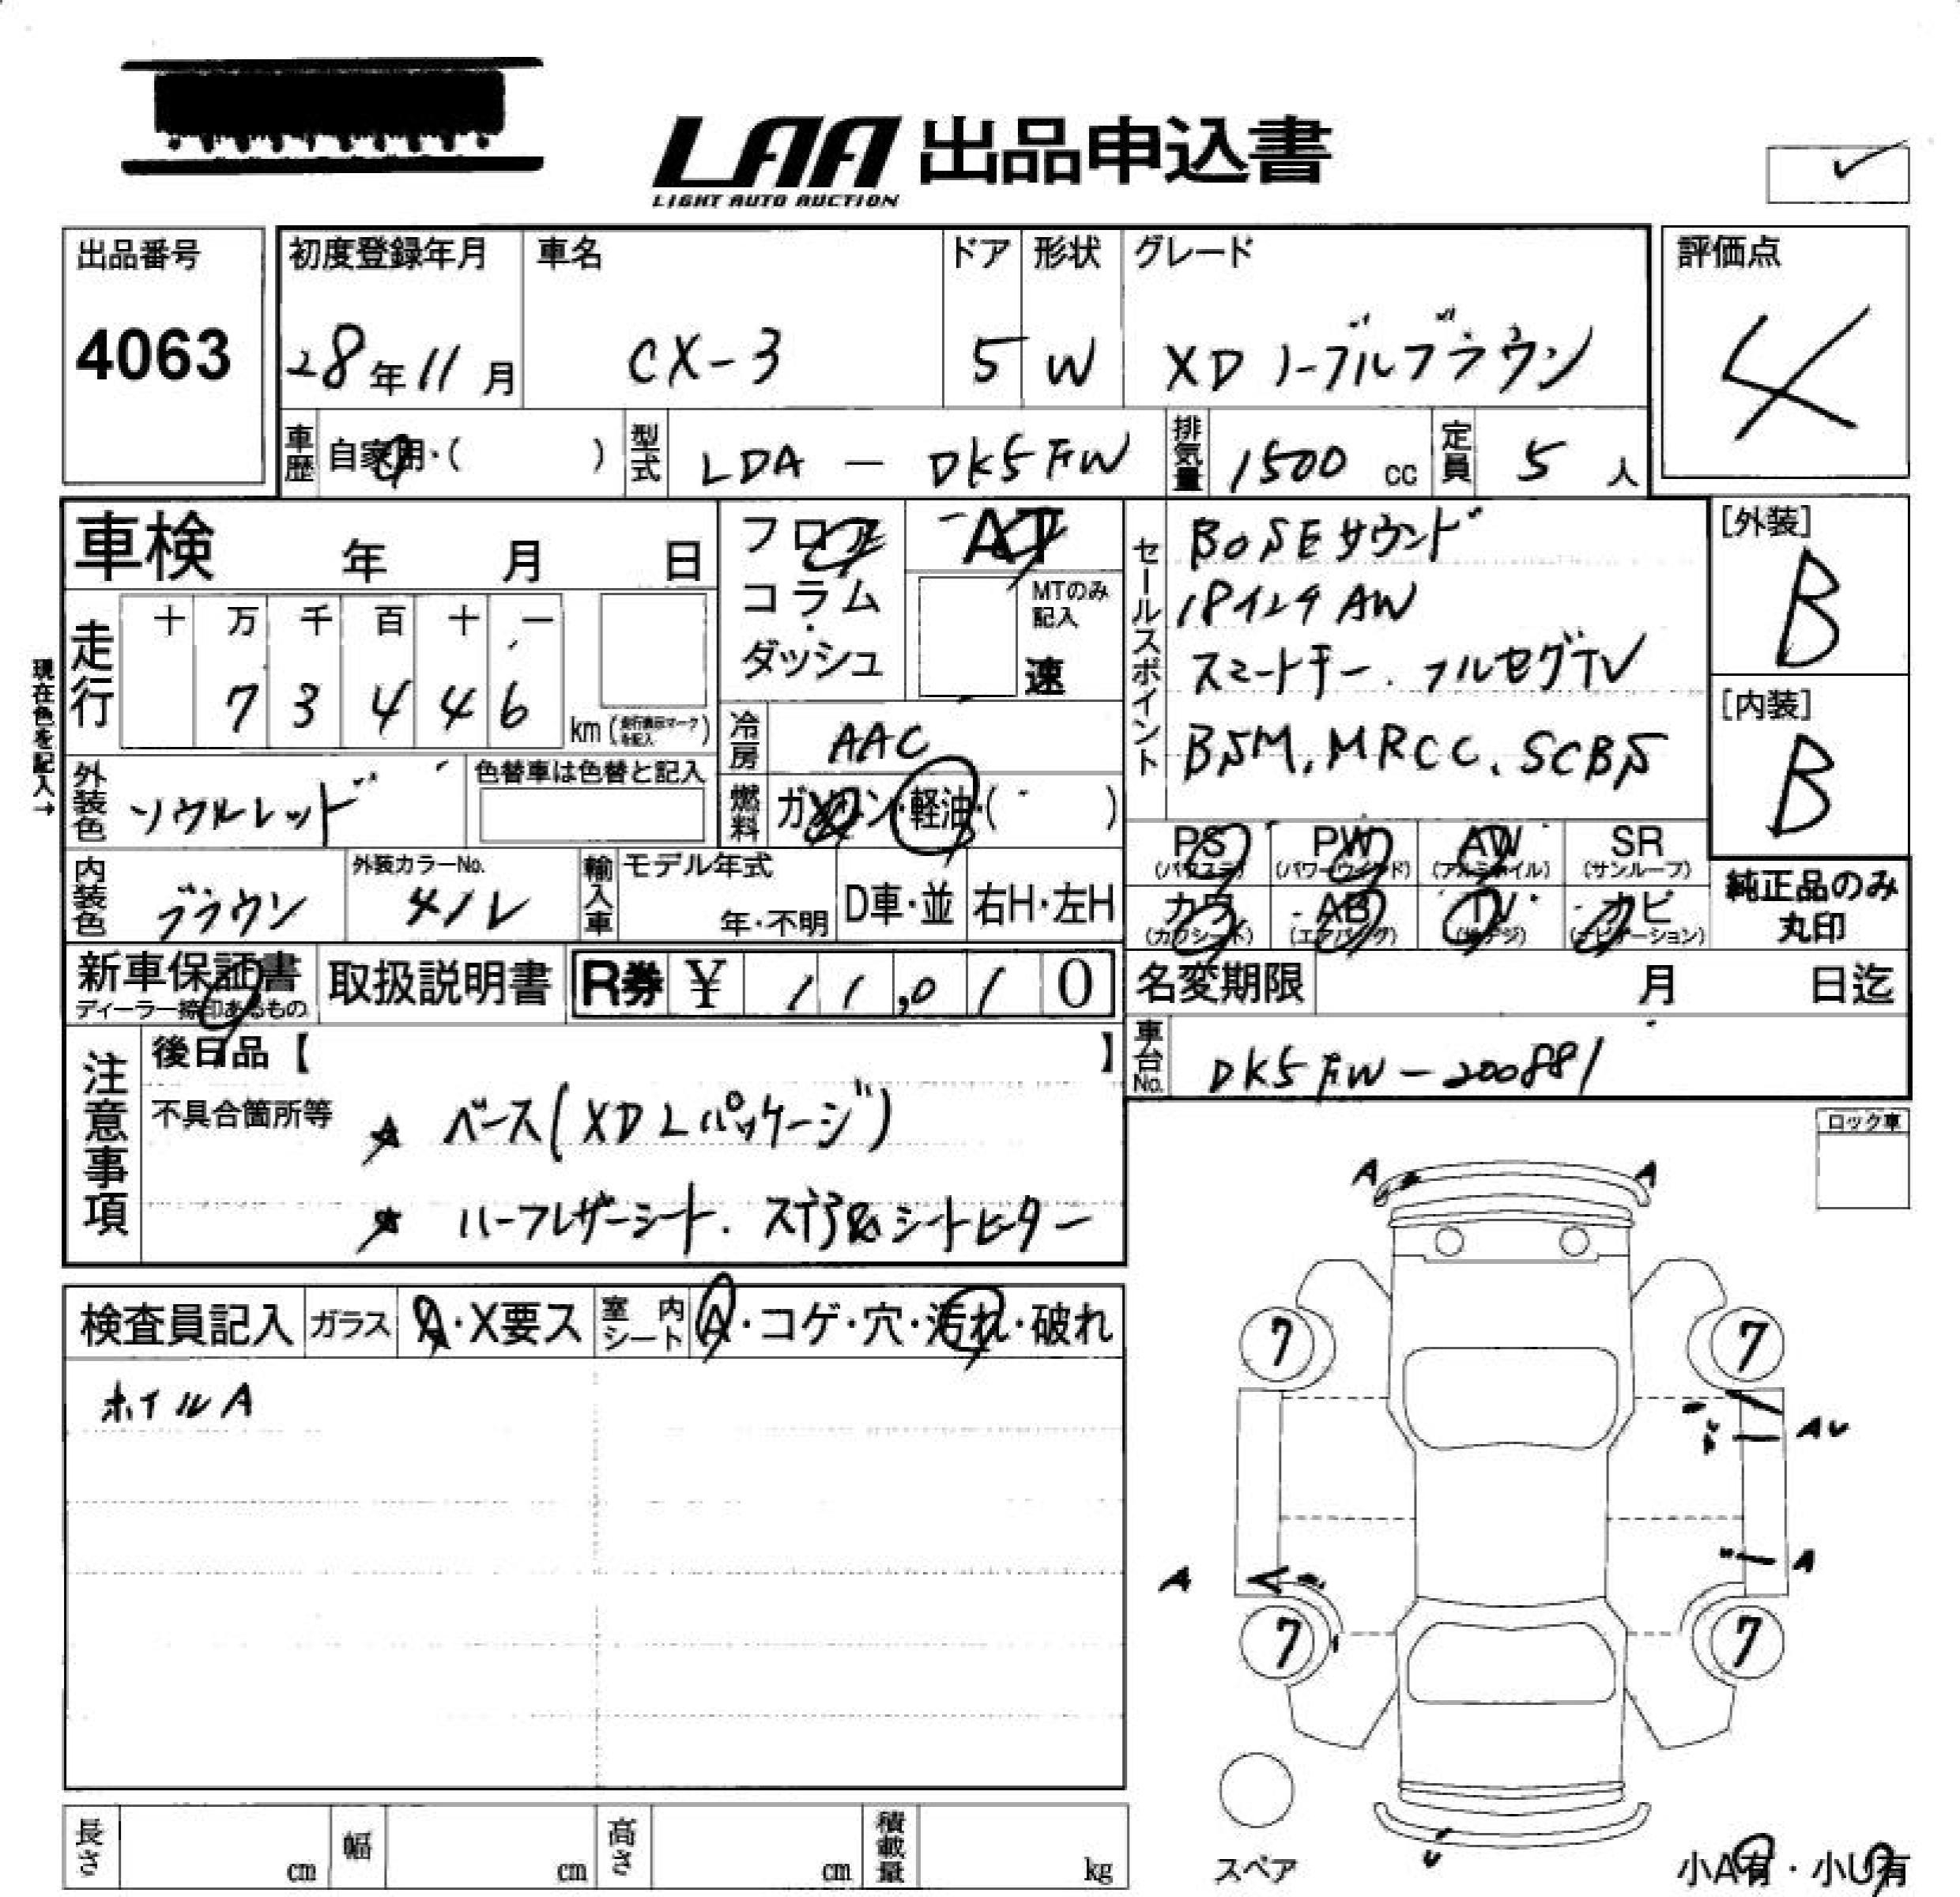 LAA 出品申込書
LIGHT AUTO AUCTION
出品番号
4063
初度登録年月
28年11月
車名
CX-3
ドア
5
形状
W
グレード
XD ノーブルブラウン
評価点
4
車歴 自家用・( )
型式 LDA - DK5FW
排気量 1500 cc
定員 5 人
車検 年 月 日
フロア
コラム
・
ダッシュ
AT
MTのみ
記入
速
セールスポイント
BOSEサウンド
18インチ AW
スマートキー.フルセグTV
BSM.MRCC.SCBS
[外装]
B
[内装]
B
現在色を記入→
走行
十 万 千 百 十 一
7 3 4 4 6
km (走行表示マークを記入)
冷房 AAC
外装色 ソウルレッド
色替車は色替と記入
燃料 ガソリン・軽油・( )
PS PW AW SR
(パワステ) (パワーウインド) (アルミホイル) (サンルーフ)
カワ AB TV ナビ
(カワシート) (エアバッグ) (地デジ) (ナビゲーション)
純正品のみ
丸印
内装色 ブラウン
外装カラーNo.
41V
輸入車
モデル年式
年・不明
D車・並 右H・左H
新車保証書
ディーラー捺印あるもの
取扱説明書
R券 ¥ 11,010
名変期限 月 日迄
車台No. DK5FW-200881
注意事項
後日品【 】
不具合箇所等
★ ベース(XD Lパッケージ)
★ ハーフレザーシート.ステア&シートヒーター
ロック車
検査員記入 ガラス A・X要ス 室内シート A・コゲ・穴・汚れ・破れ
ホイルA
A A
7 7
AU
A A
7 7
U
スペア
小A有・小U有
長さ cm 幅 cm 高さ cm 積載量 kg